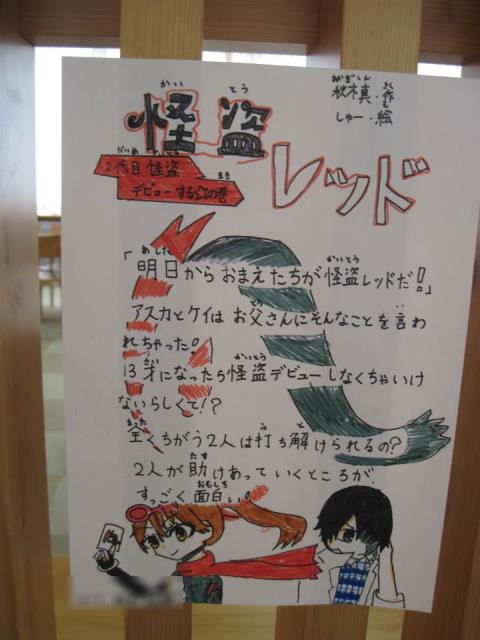 怪盗
レッド
秋木真・作
しゅー・絵
2代目怪盗
デビューするの巻
「明日からおまえたちが怪盗レッドだ!!」
アスカとケイはお父さんにそんなことを言わ
れちゃった!
13才になったら怪盗デビューしなくちゃいけ
ないらしくて!?
全くちがう2人は打ち解けられるの?
2人が助けあっていくところが
すっごく面白いの